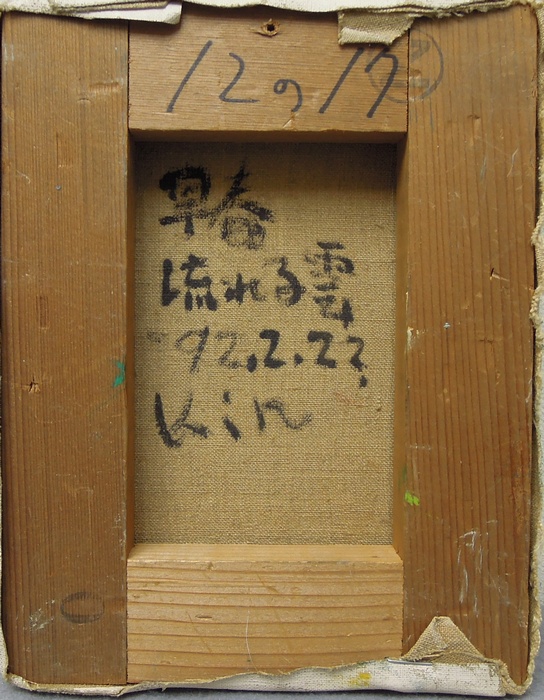 12の17
早春
流れる雲
-92.2.22
Kin